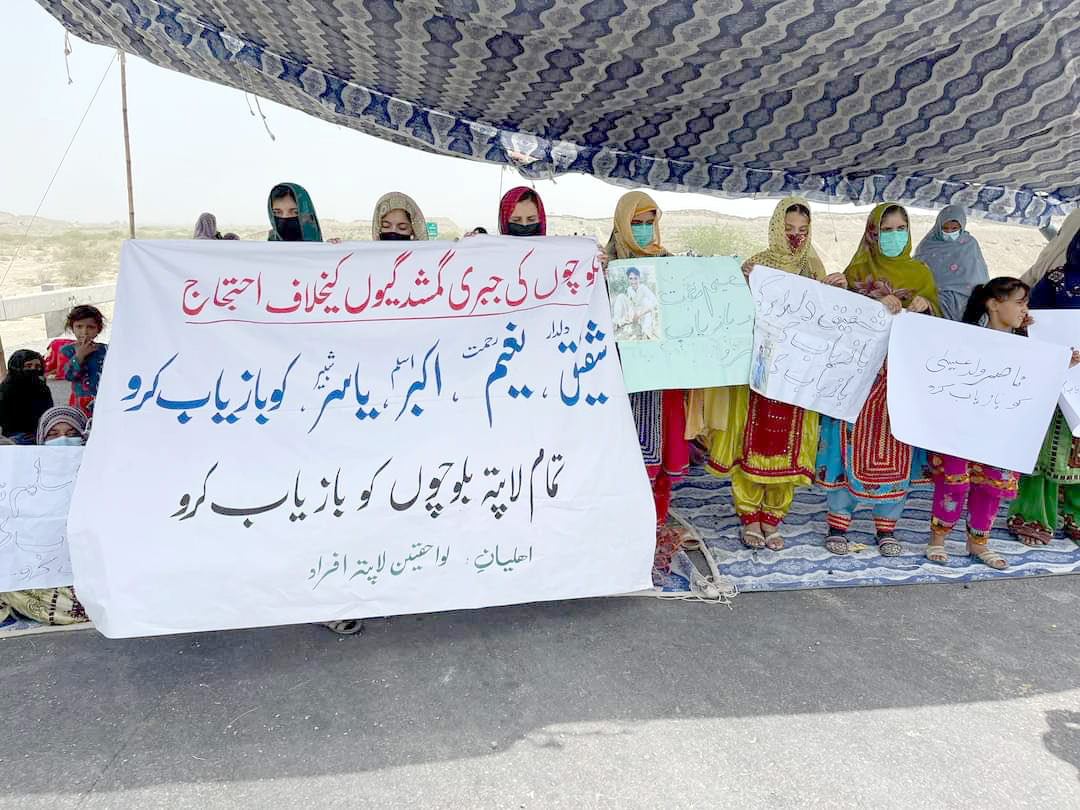 بلوچوں کی جبری گمشدگیوں کیخلاف احتجاج
شفیق دلدار، نعیم رحمت، اکبر اسلم، یاسر شبیر، کو بازیاب کرو
تمام لاپتہ بلوچوں کو بازیاب کرو
اھلیانِ، لواحقین لاپتہ افراد
نعیم رحمت
کو بازیاب
کرو
شفیق دلدار کو
بازیاب کرو
بازیاب کرو
ناصر ولد عیسیٰ
کو بازیاب کرو